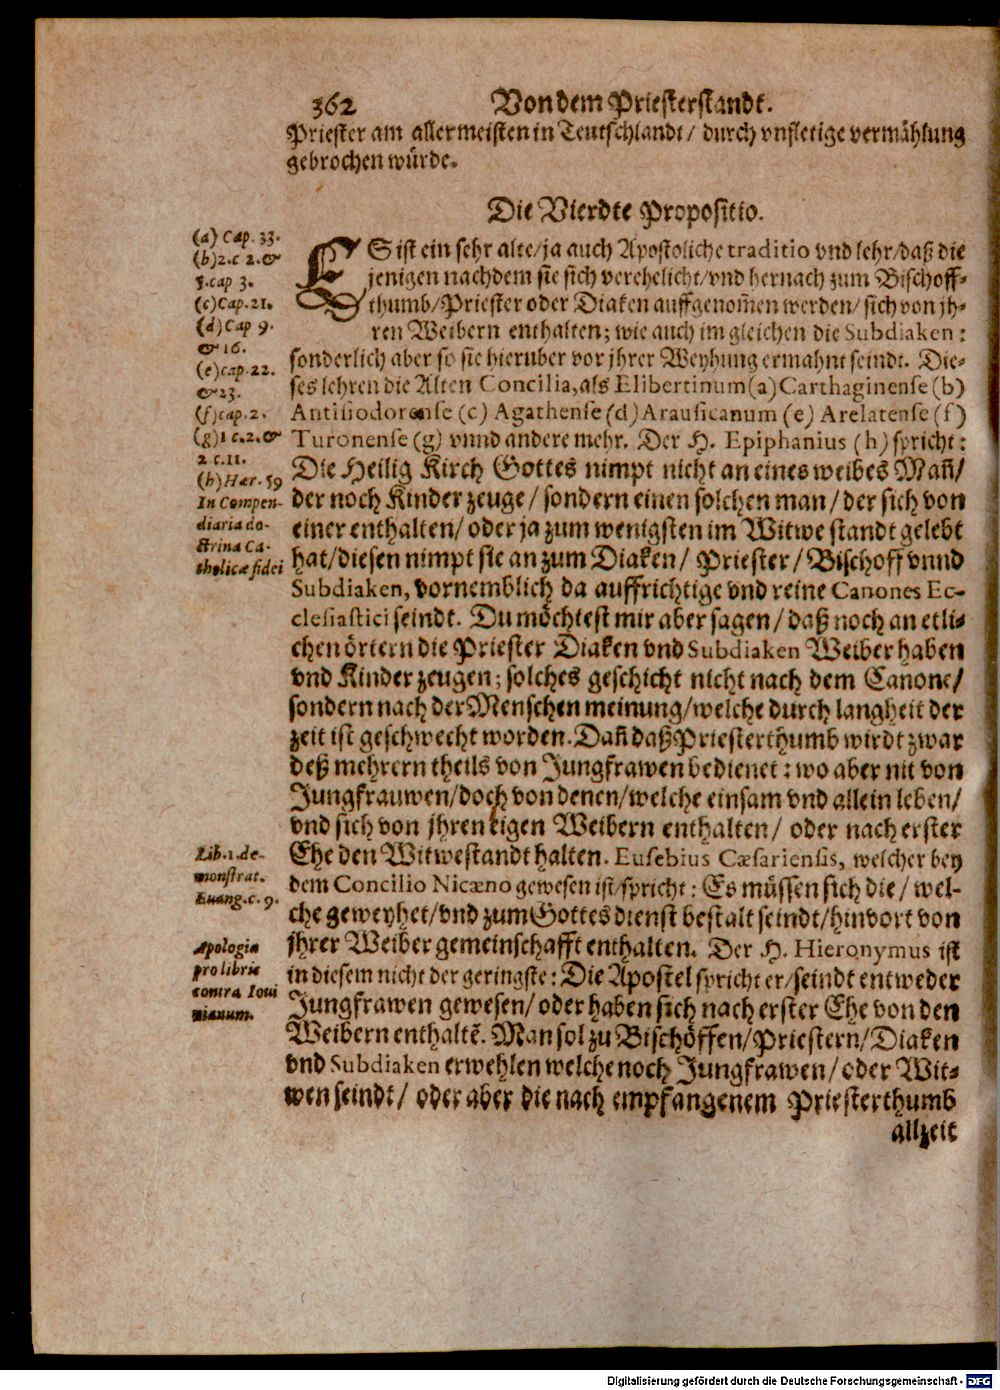 362 Von dem Priesterstandt.
Priester am allermeisten in Teutschlandt / durch vnfletige vermählung
gebrochen würde.
Die Vierdte Propositio.
ES ist ein sehr alte/ja auch Apostoliche traditio vnd lehr/daß die
jenigen nachdem sie sich verehelicht/vnd hernach zum Bischoff-
thumb/Priester oder Diaken auffgenom̃en werden/sich von jh-
ren Weibern enthalten; wie auch im gleichen die Subdiaken:
sonderlich aber so sie hieruber vor jhrer Weyhung ermahnt seindt. Die-
ses lehren die Alten Concilia, als Elibertinum (a) Carthaginense (b)
Antisiodorense (c) Agathense (d) Arausicanum (e) Arelatense (f)
Turonense (g) vnnd andere mehr. Der H. Epiphanius (h) spricht:
Die Heilig Kirch Gottes nimpt nicht an eines weibes Mañ/
der noch Kinder zeuge / sondern einen solchen man / der sich von
einer enthalten/ oder ja zum wenigsten im Witwe standt gelebt
hat/diesen nimpt sie an zum Diaken/ Priester/ Bischoff vnnd
Subdiaken, vornemblich da auffrichtige vnd reine Canones Ec-
clesiastici seindt. Du möchtest mir aber sagen / daß noch an etli-
chen örtern die Priester Diaken vnd Subdiaken Weiber haben
vnd Kinder zeugen; solches geschicht nicht nach dem Canone/
sondern nach der Menschen meinung/welche durch langheit der
zeit ist geschwecht worden. Dañ daß Priesterthumb wirdt zwar
deß mehrern theils von Jungfrawen bedienet: wo aber nit von
Jungfrauwen/doch von denen/welche einsam vnd allein leben/
vnd sich von jhren eigen Weibern enthalten/ oder nach erster
Ehe den Witwestandt halten. Eusebius Cæsariensis, welcher bey
dem Concilio Nicæno gewesen ist/spricht: Es müssen sich die / wel-
che geweyhet/vnd zum Gottes dienst bestalt seindt/hinvort von
jhrer Weiber gemeinschafft enthalten. Der H. Hieronymus ist
in diesem nicht der geringste: Die Apostel spricht er/seindt entweder
Jungfrawen gewesen/ oder haben sich nach erster Ehe von den
Weibern enthaltẽ. Man sol zu Bischöffen/Priestern/Diaken
vnd Subdiaken erwehlen welche noch Jungfrawen/ oder Wit-
wen seindt/ oder aber die nach empfangenem Priesterthumb
allzeit
(a) Cap. 33.
(b) 2. c 2. &
5. cap 3.
(c) Cap. 21.
(d) Cap 9.
& 16.
(e) cap. 22.
& 23.
(f) cap. 2.
(g) 1 c. 2. &
2 c. 11.
(h) Hær. 59
In Compen-
diaria do-
ctrina Ca-
tholicæ fidei
Lib. 1. de-
monstrat.
Euang. c. 9.
Apologia
pro libris
contra Ioui
nianum.
Digitalisierung gefördert durch die Deutsche Forschungsgemeinschaft - DFG